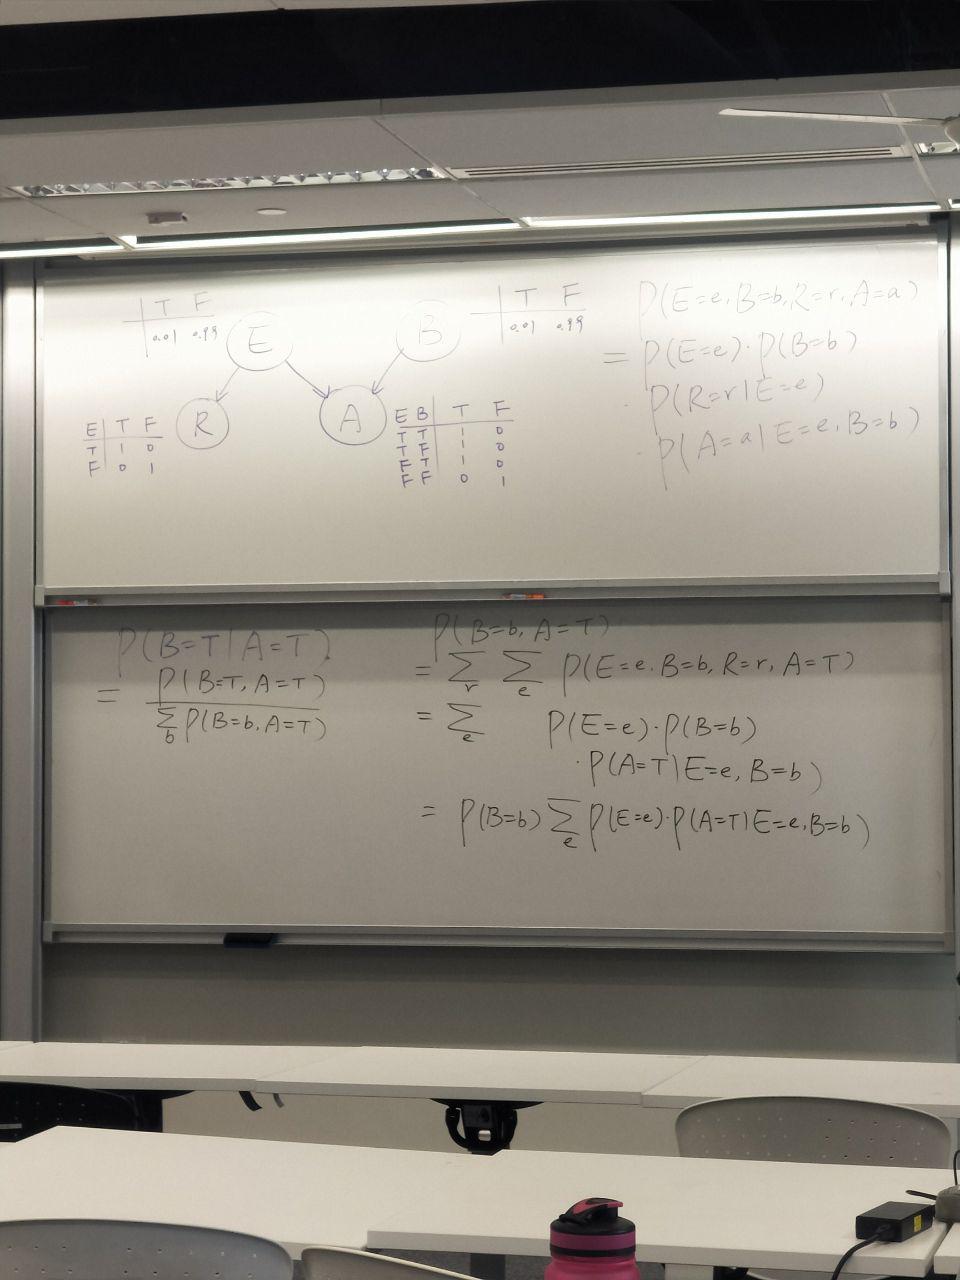 T F
0.01 0.99
E
B
T F
0.01 0.99
R
A
E T F
T 1 0
F 0 1
E B T F
T T 1 0
T F 1 0
F T 1 0
F F 0 1
P(E=e, B=b, R=r, A=a)
= P(E=e) · P(B=b)
· P(R=r|E=e)
· P(A=a|E=e, B=b)
P(B=T|A=T)
= P(B=T, A=T)
∑ P(B=b, A=T)
b
P(B=b, A=T)
= ∑ ∑ P(E=e, B=b, R=r, A=T)
r e
= ∑ P(E=e) · P(B=b)
e
· P(A=T|E=e, B=b)
= P(B=b) ∑ P(E=e) · P(A=T|E=e, B=b)
e